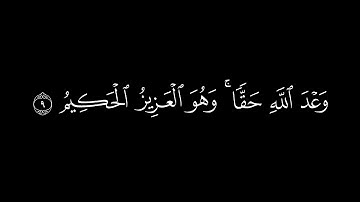 وَعۡدَ ٱللَّهِ حَقّٗاۚ وَهُوَ ٱلۡعَزِيزُ ٱلۡحَكِيمُ ٩